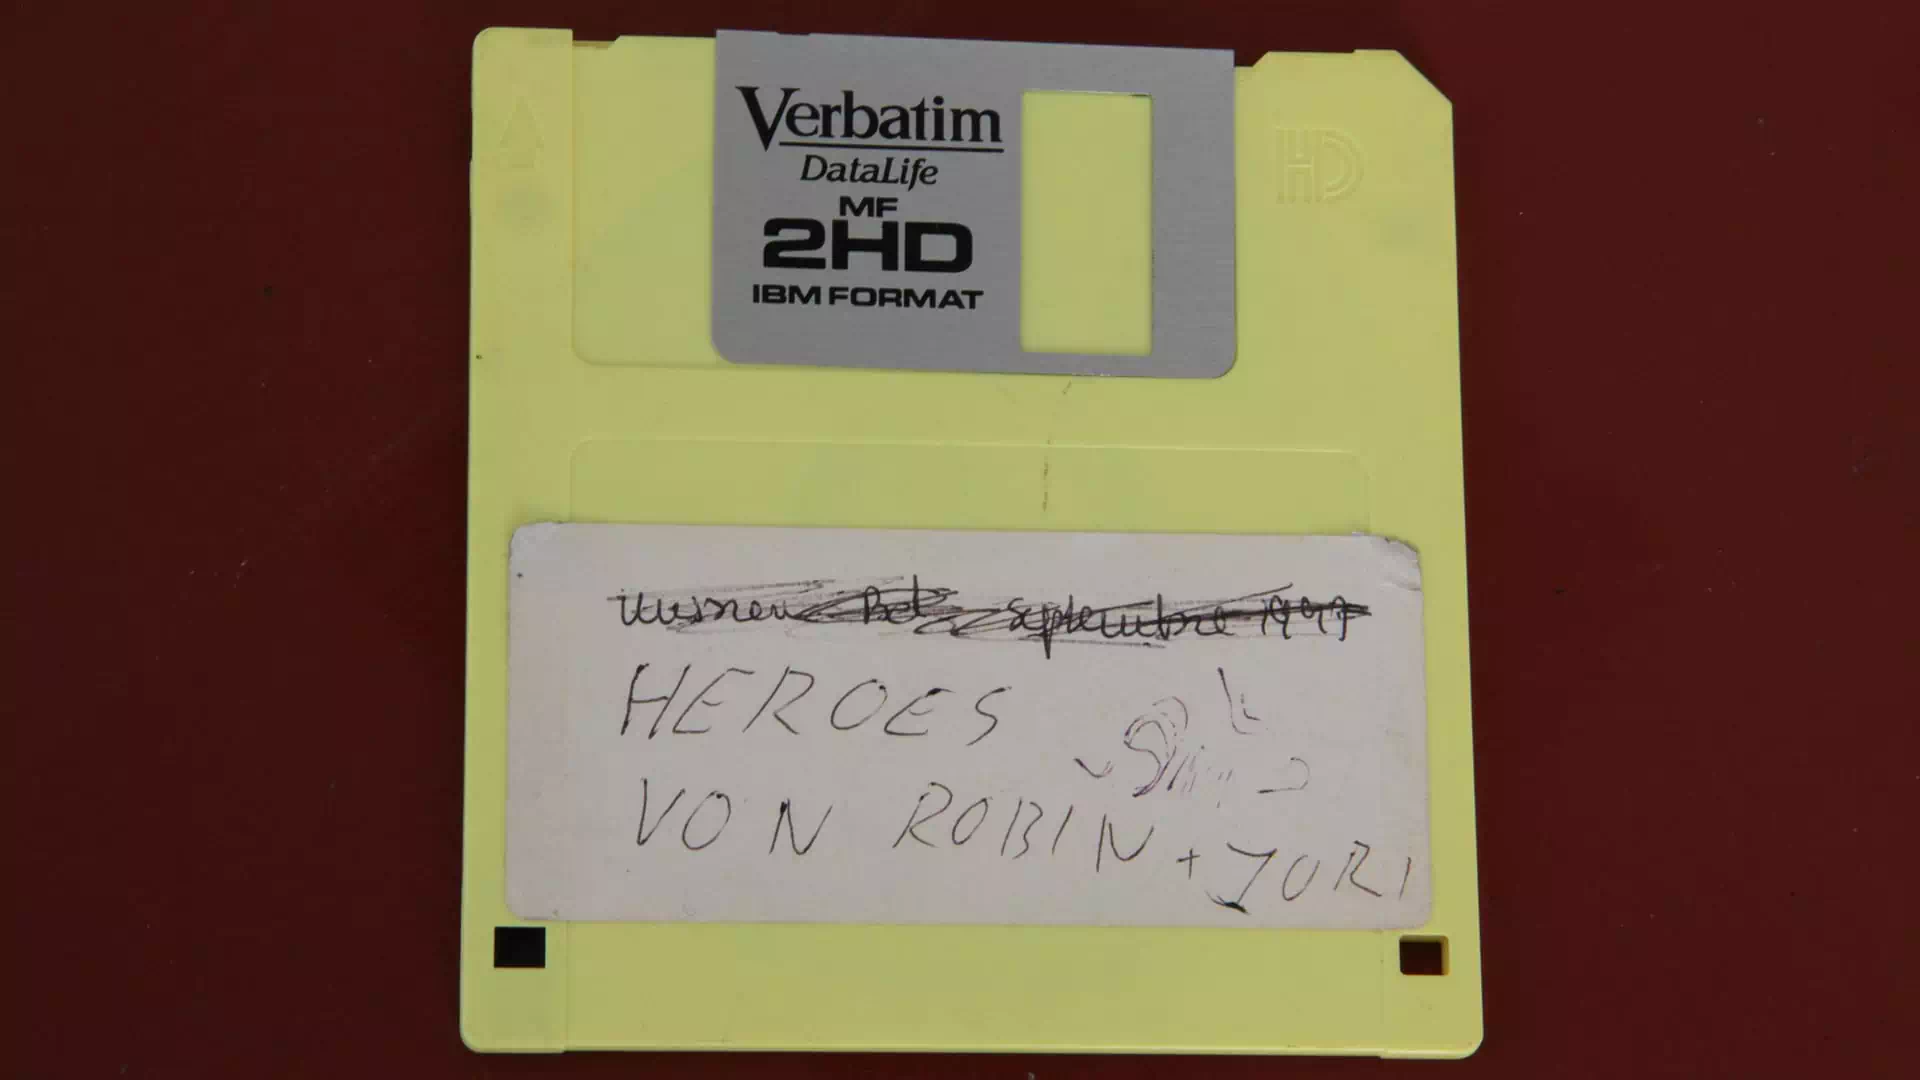 Verbatim
DataLife
MF
2HD
IBM FORMAT
HD
septembre 1997
HEROES
VON ROBIN + JORI